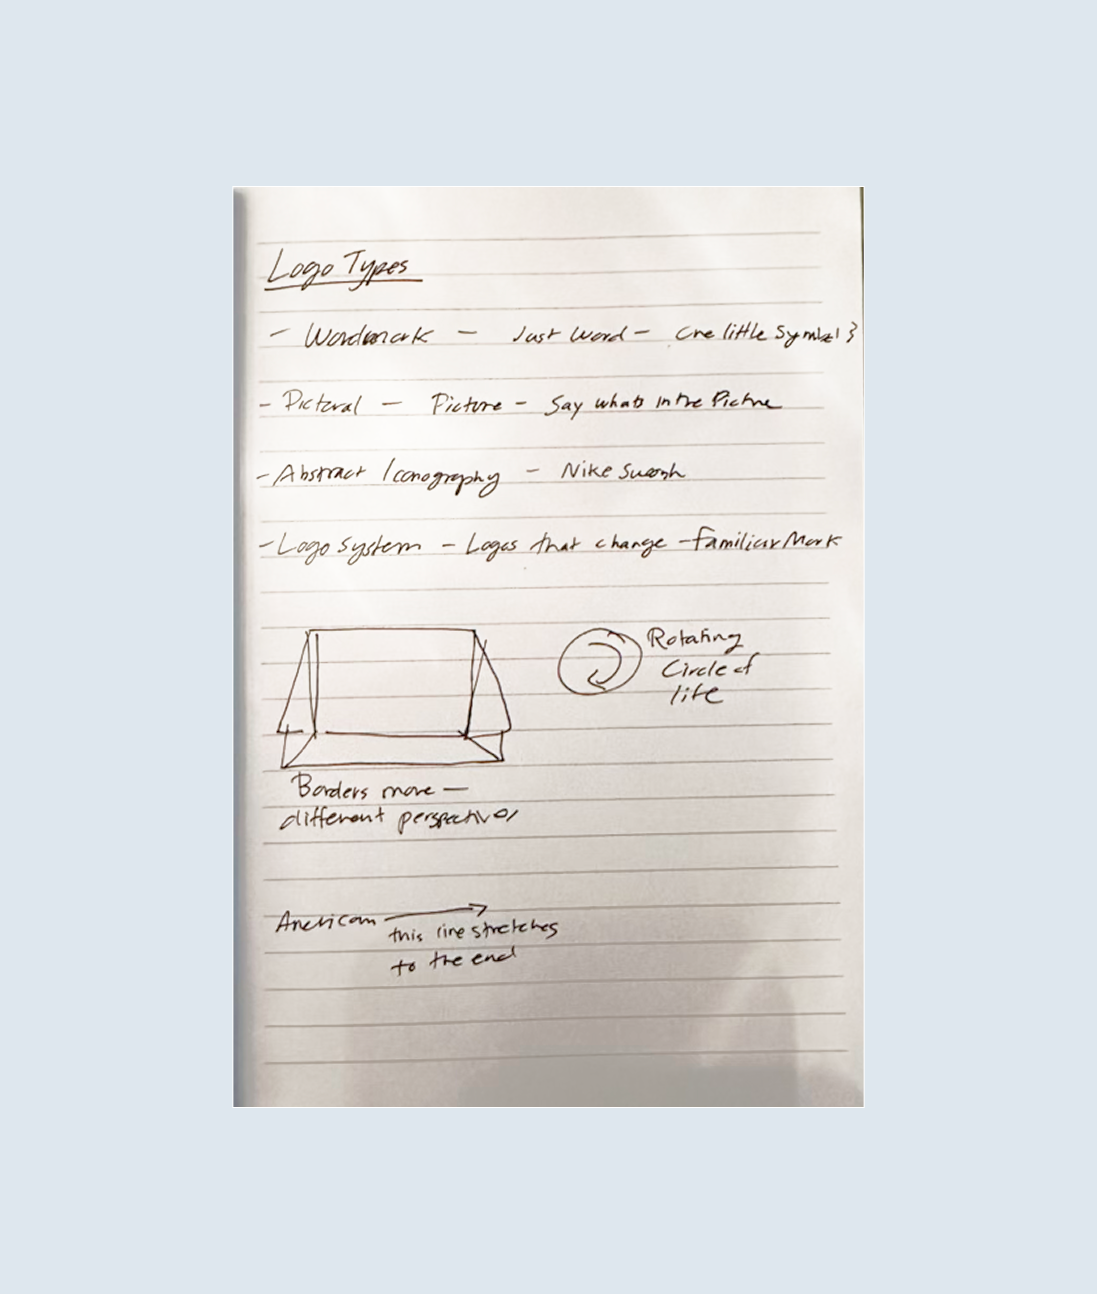 Logo Types
- Wordmark - Just Word - one little symbol }
- Pictoral - Picture - Say whats in the Picture
- Abstract Iconography - Nike Swoosh
- Logo System - Logos that change - Familiar Mark
Rotating
Circle of
life
Borders move -
different perspectives
American
this line stretches
to the end